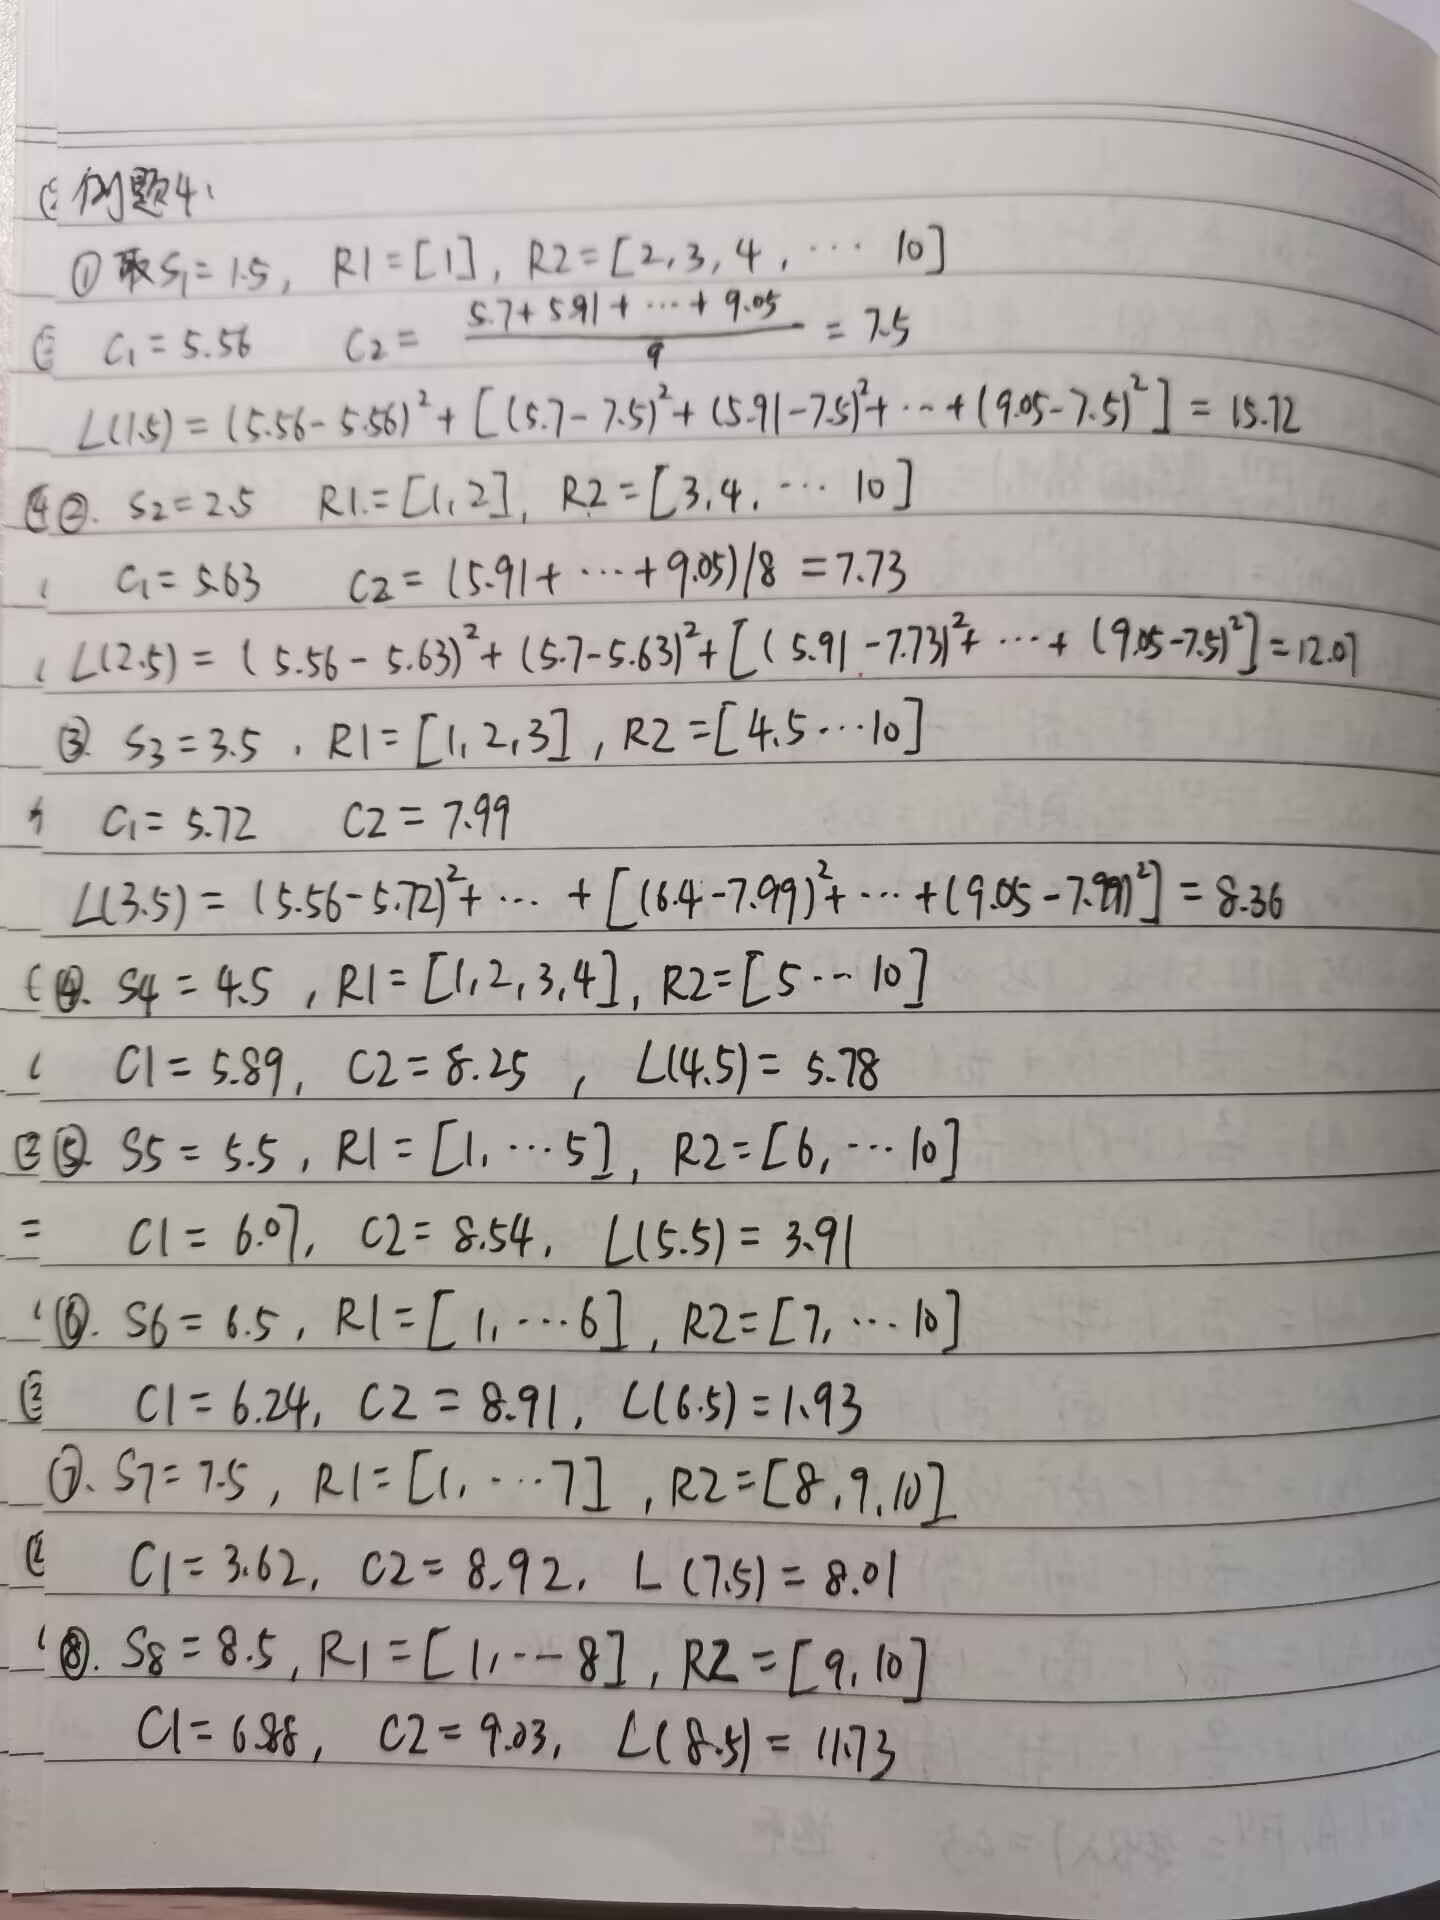 例题4:
① 取S₁=1.5, R1=[1], R2=[2,3,4,⋯10]
C₁=5.56 C₂= (5.7+5.91+⋯+9.05)/9 =7.5
L(1.5)=(5.56-5.56)²+[(5.7-7.5)²+(5.91-7.5)²+⋯+(9.05-7.5)²]=15.72
②. S₂=2.5 R1=[1,2], R2=[3,4,⋯10]
C₁=5.63 C₂=(5.91+⋯+9.05)/8=7.73
L(2.5)=(5.56-5.63)²+(5.7-5.63)²+[(5.91-7.73)²+⋯+(9.05-7.5)²]=12.07
③. S₃=3.5, R1=[1,2,3], R2=[4.5⋯10]
C₁=5.72 C2=7.99
L(3.5)=(5.56-5.72)²+⋯+[(6.4-7.99)²+⋯+(9.05-7.99)²]=8.36
④. S4=4.5, R1=[1,2,3,4], R2=[5⋯10]
C1=5.89, C2=8.25, L(4.5)=5.78
⑤. S5=5.5, R1=[1,⋯5], R2=[6,⋯10]
C1=6.07, C2=8.54, L(5.5)=3.91
⑥. S6=6.5, R1=[1,⋯6], R2=[7,⋯10]
C1=6.24, C2=8.91, L(6.5)=1.93
⑦. S7=7.5, R1=[1,⋯7], R2=[8,9,10]
C1=3.62, C2=8.92, L(7.5)=8.01
⑧. S8=8.5, R1=[1,⋯8], R2=[9,10]
C1=6.88, C2=9.03, L(8.5)=11.73